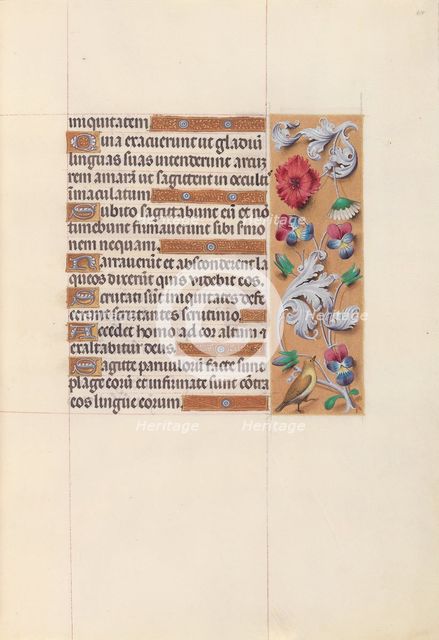 iniquitatem
Quia exacuerunt ut gladiũ
linguas suas intenderunt arcũ
rem amarã ut sagittent in occult̃
ĩmaculatum
Subito sagittabunt eũ et nõ
timebunt firmauerunt sibi sermo
nem nequam
Narrauerũt et absconderent la
queos dixerũt quis videbit eos
Scrutati sũt iniquitates defe
cerunt scrutantes scrutinio
Accedet homo ad cor altum et
exaltabitur deus
Sagitte paruulorũ facte sunt
plage eorũ et infirmate sunt cõtra
eos lingue eorum
Heritage Heritage
Heritage Heritage
Heritage Heritage